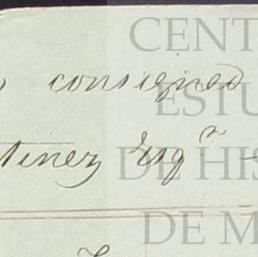 consigned
tinez Esqr
CENT
ESTU
DE HIS
DE M